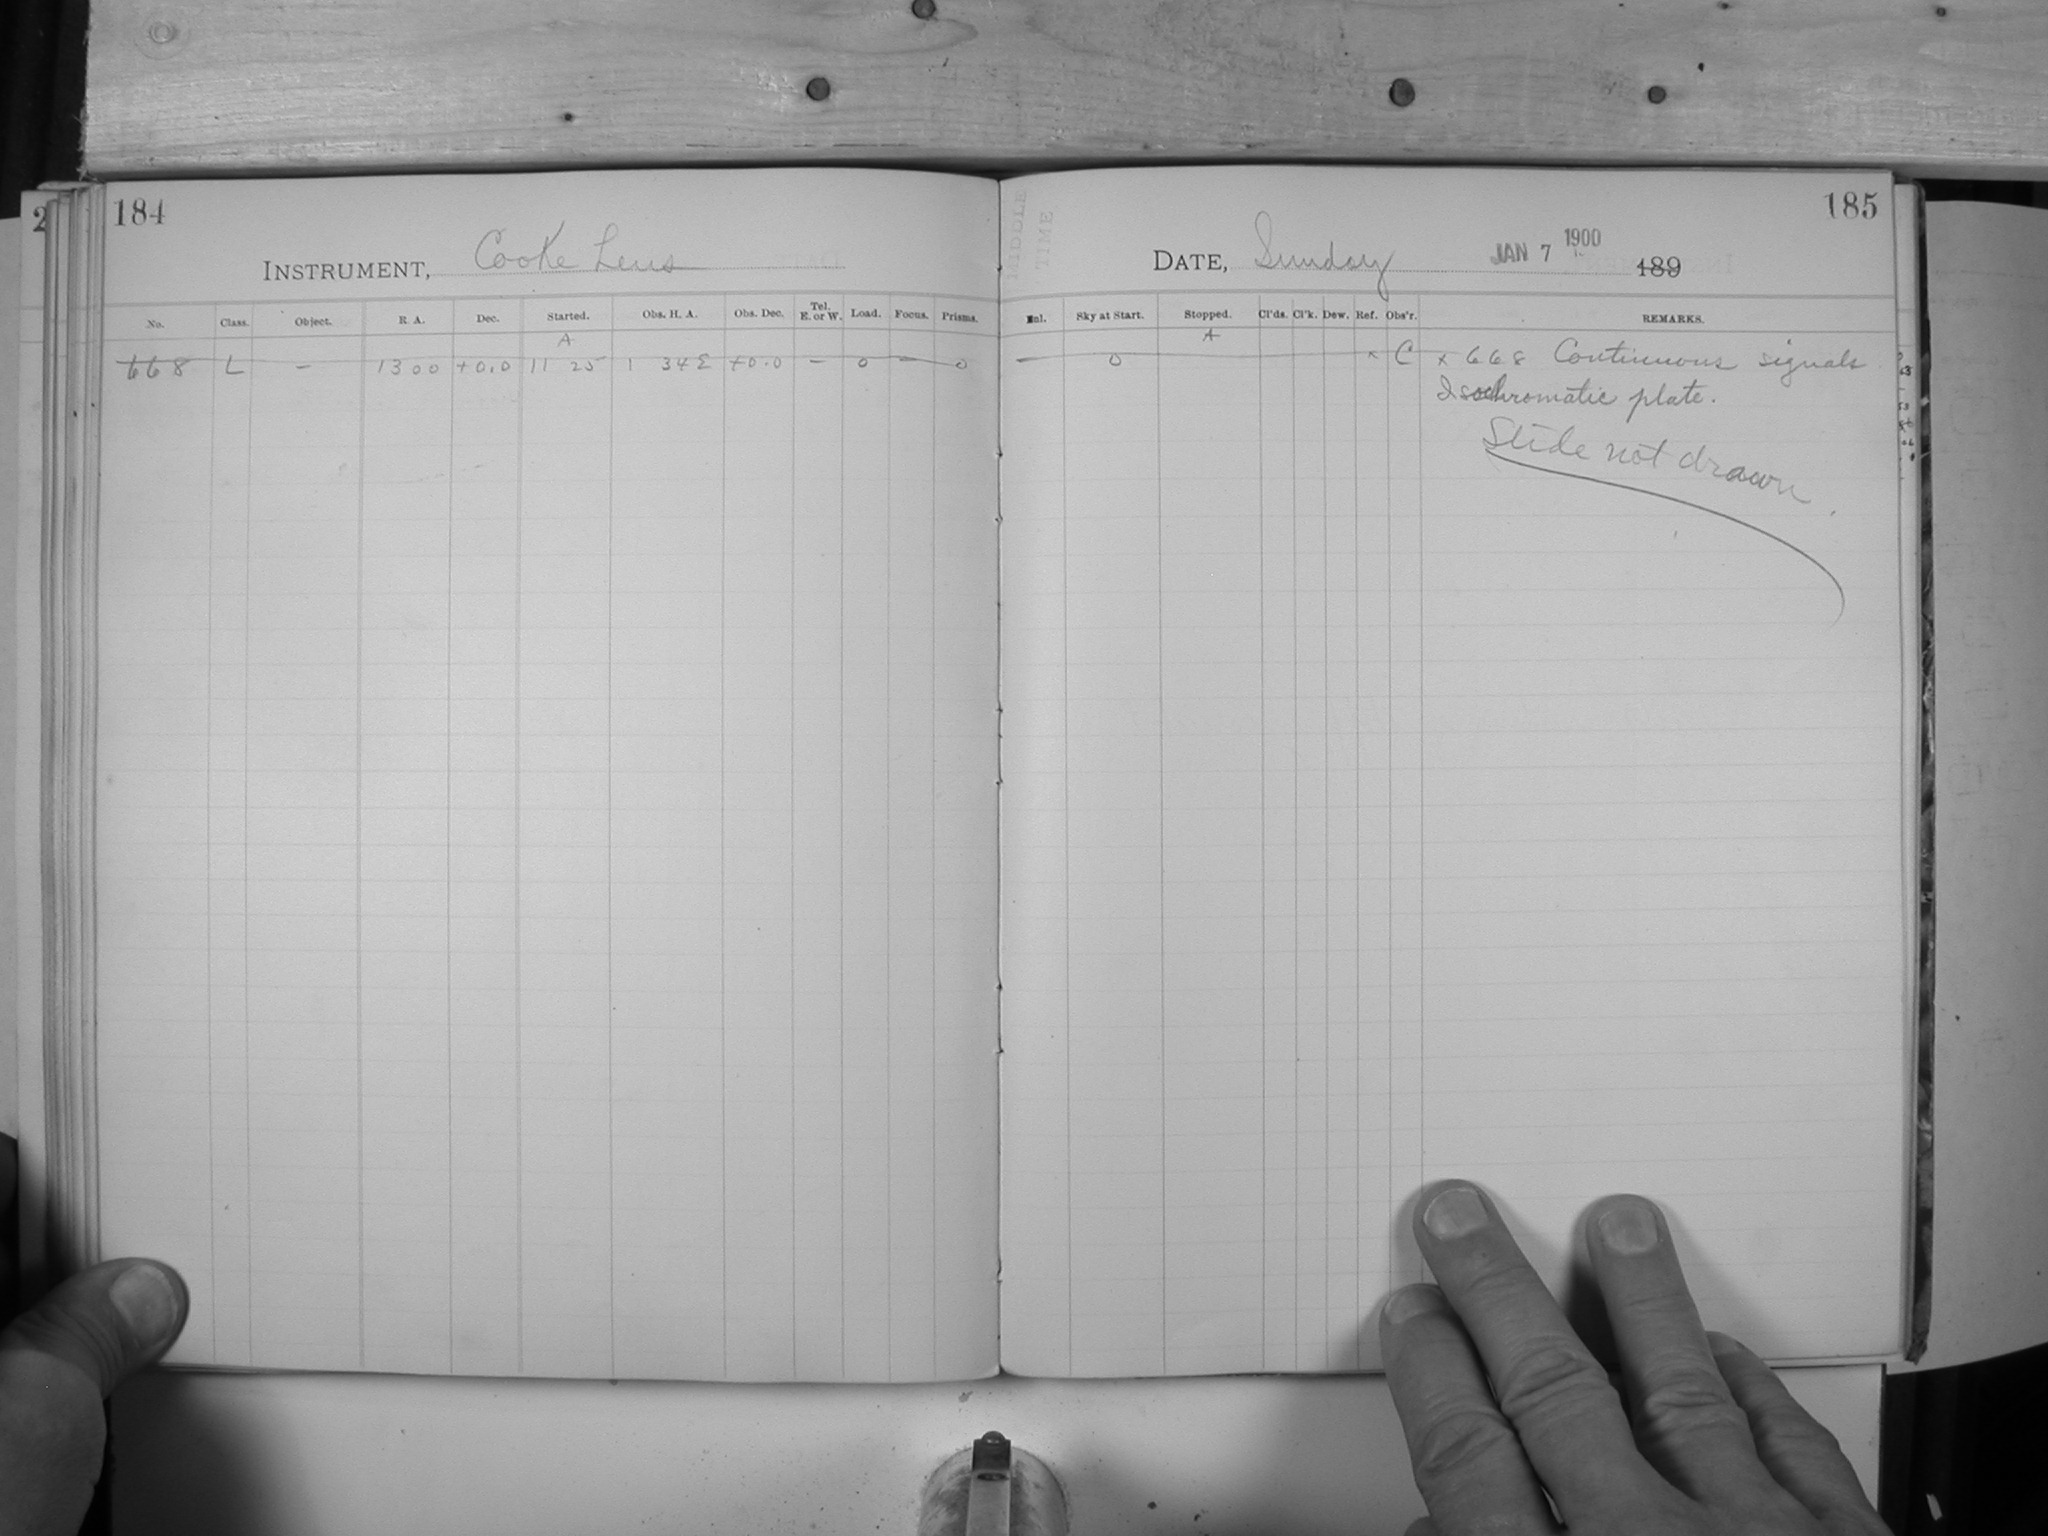 184
INSTRUMENT, Cooke Lens
No. Class. Object. R. A. Dec. Started. Obs. H. A. Obs. Dec. Tel. E. or W. Load. Focus. Prisms.
A
668 L — 13 00 +0.0 11 25 1 34 E +0.0 — 0 — 0
185
MIDDLE
TIME
DATE, Sunday JAN 7 1900 189
Enl. Sky at Start. Stopped. Cl'ds. Cl'k. Dew. Ref. Obs'r. REMARKS.
A
— 0 x C x 668 Continuous signals
Isochromatic plate.
Slide not drawn